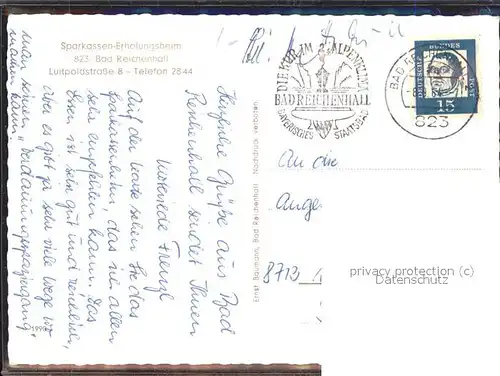 Sparkassen-Erholungsheim
823 Bad Reichenhall
Luitpoldstraße 8 - Telefon 2844
Herzliche Grüße aus Bad
Reichenhall sendet Ihnen
Auf der Karte sehen Sie das
Sparkassenheim, das ich allen
sehr empfehlen kann. Das
Essen ist sehr gut und reichlich,
aber es gibt ja sehr viele Wege wo
man seinen
machen kann.
Ernst Baumann, Bad Reichenhall Nachdruck verboten
DIE KUR IM ALPENKLIMA
BAD REICHENHALL
BAYERISCHES STAATSBAD
DEUTSCHE BUNDESPOST
15
BAD
823
An die
Ange
8713
privacy protection (c)
Datenschutz